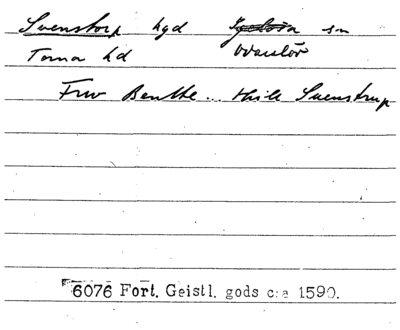 Svenstorp hgd Igelösa sn
Torna hd Odarslöv
Frw Benthe... thill Suenstrup
6076 Fort. Geistl. gods c:a 1590.